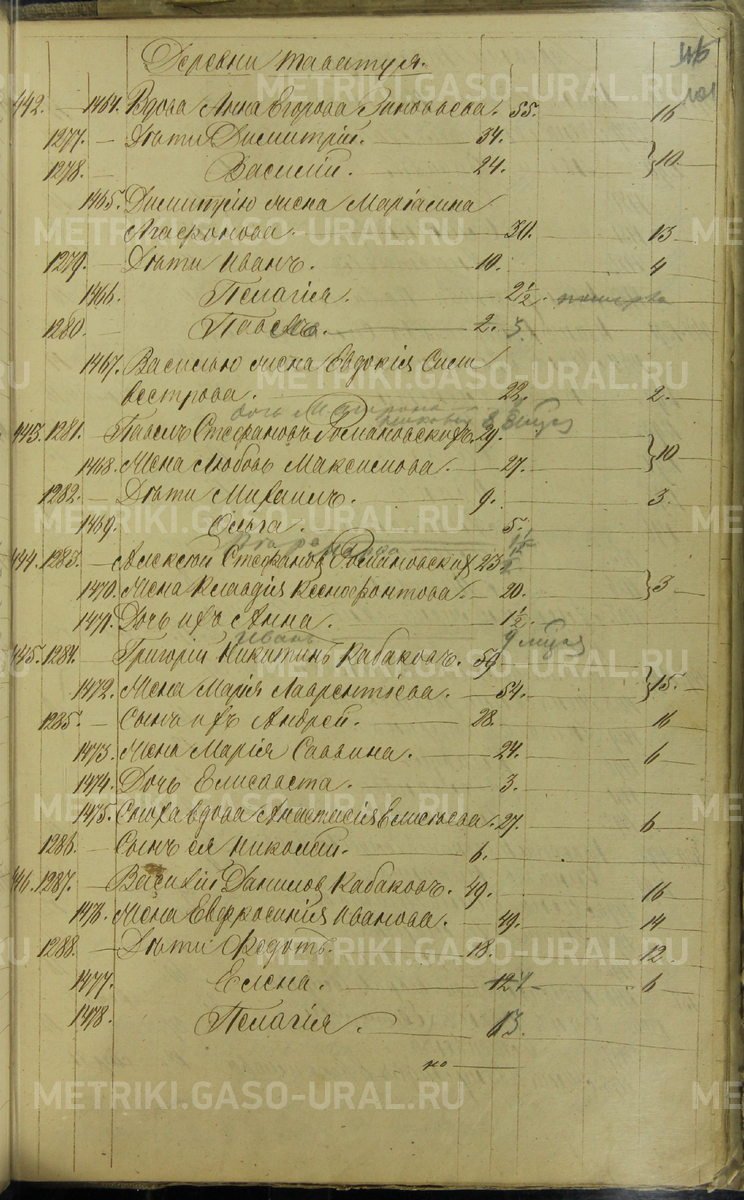 45
101
Деревни Таватуя.
442. — 1464. Вдова Анна Егорова Зиновьева. 55. 16
1277. — Дѣти Димитрій. 34.
1278. — Василій. 24. } 10.
1465. Димитрію жена Маріамна
Агафонова. 30. 13
1279. — Дѣти Иванъ. 10. 4
1466. Пелагія. 2½.
1280. — Павелъ. 2. 3.
1467. Василью жена Евдокія Сили
вестрова. 22. 2.
дочь
443. 1281. — Павелъ Стефановъ Романовскихъ. 29.
1468. Жена Любовь Максимова. 27. } 10
1282. — Дѣти Михаилъ. 9. 3.
1469. Ольга. 5.
444. 1283. — Алексѣй Стефановъ Романовских 23
1470. Жена Клавдія Ксенофонтова. 20. } 3
1471. Дочь ихъ Анна. 1½.
Иванъ
445. 1284. — Григорій Никитинъ Кабаковъ. 59.
1472. Жена Марія Лаврентіева. 54. } 15.
1285. — Сынъ ихъ Андрей. 28. 16
1473. Жена Марія Саввина. 24. 6
1474. Дочь Елисавета. 3.
1475. Сноха вдова Анастасія Елисѣева. 27. 6
1286. — Сынъ ея Николай. 6.
446. 1287. — Василій Даниловъ Кабаковъ. 49. 16
1476. Жена Евфросинія Иванова. 49. 14
1288. — Дѣти Федотъ. 18. 12
1477. Елена. 12 6
1478. Пелагія. 13.
METRIKI.GASO-URAL.RU